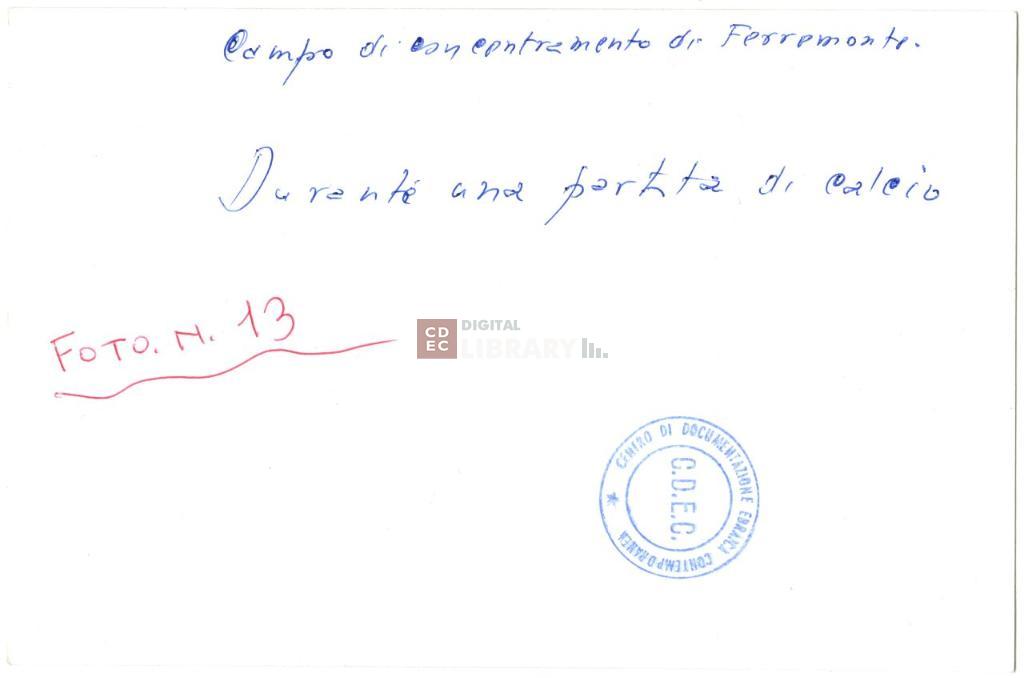 Campo di concentramento di Ferramonti.
Durante una partita di calcio
FOTO. N. 13
CDEC DIGITAL LIBRARY
CENTRO DI DOCUMENTAZIONE EBRAICA CONTEMPORANEA
C.D.E.C.